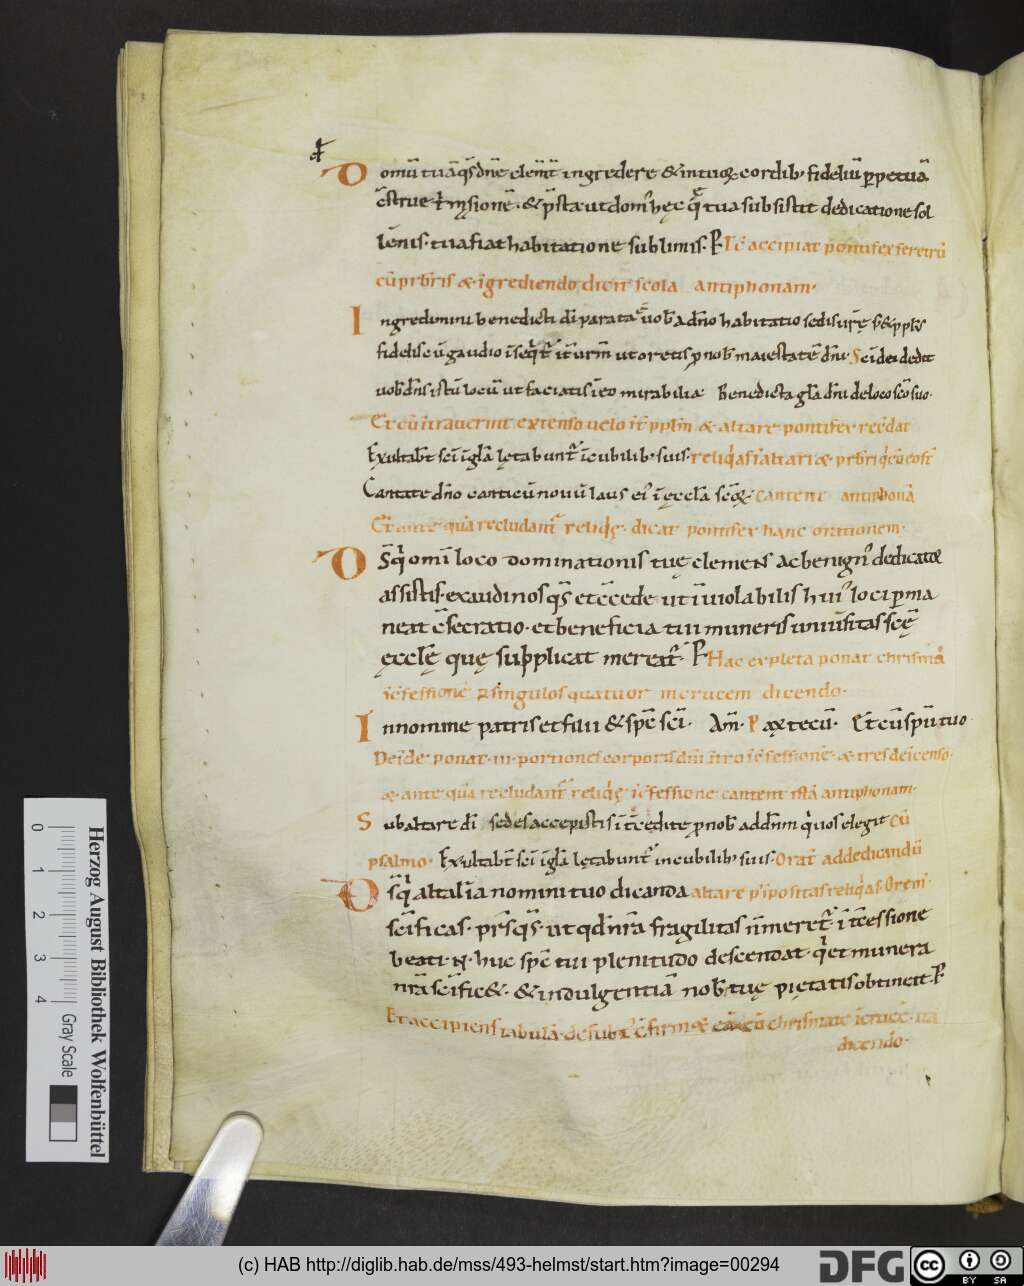 Domū tuā qs̄ dn̄e clem̄t ingredere & intuoꝝ cordib; fideliū ꝑpetuā
c̄strue mansionē. & p̄sta ut dom' hęc q̄ tua subsistit dedicatione sol
lēnis. tua fiat habitatione sublimis. P Tc̄ accipiat pontifex feretrū
cū prb̄ris & īgrediendo dicit scola antiphonam.
Ingredimini benedicti dn̄i parata ē uob̄ a dn̄o habitatio sedis ur̄ę s; & ppl̄s
fidelis cū gaudio īseq̄t̄ iť urm̄ ut oretis ꝓ nob̄ maiestatē dn̄i. Sc̄i dei dedit
uob̄ dn̄s istū locū ut faciatis ī eo mirabilia Benedicta gl̄a dn̄i de loco sc̄o suo.
Et cū ītrauerint extenso uelo iť ppl̄m & altare pontifex
Exultab̄t sc̄i ī gl̄a lętabunť ī cubilib; suis.
Cantate dn̄o canticū nouū laus ei' ī ęccl̄a sc̄oꝝ. Cantent antiphonā
Et ante quā recludanť reliqę. dicat pontifex hanc orationem.
Ds̄ q̇ omī loco dominationis tuę clemens ac benign' dedicatoꝛ
assistis. exaudi nos qs̄ et c̄cede ut īuiolabilis hui' loci ꝑma
neat c̄secratio. et beneficia tui muneris uniūsitas sc̄ę
ęccl̄ę quę supplicat mereať. P Hac expleta ponat chrismā
ī c̄fessionē ꝑ singulos quatuor in crucem dicendo.
In nomine patris et filii & spc̄ sc̄i. Am̄. Pax tecū. Et cū spū tuo
Deīde ponat .iii. portiones corporis dn̄i ītro ī c̄fessionē. & tres de incenso.
& ante quā recludanť reliqę ī c̄fessione cantent istā antiphonam.
Sub altare dī sedes accepistis īt̄cedite ꝓ nob̄ ad dn̄m quos elegit Cū
psalmo. Exultab̄t sc̄i ī gl̄a lętabunť in cubilib; suis. Orat̄ ad dedicandū
Ds̄ q̇ altaria nomini tuo dicanda altare
sc̄ificas. pr̄s qs̄. ut qd̄ nr̄a fragilitas n̄ mereť īťcessione
beati .N. huc spc̄ tui plenitudo descendat. q̇ et munera
nr̄a sc̄ific&. & indulgentiā nob̄ tuę pietatis obtineat. P
Et accipiens tabulā
dicendo.
Herzog August Bibliothek Wolfenbüttel
0 1 2 3 4
Gray Scale
(c) HAB http://diglib.hab.de/mss/493-helmst/start.htm?image=00294
DFG
cc BY SA